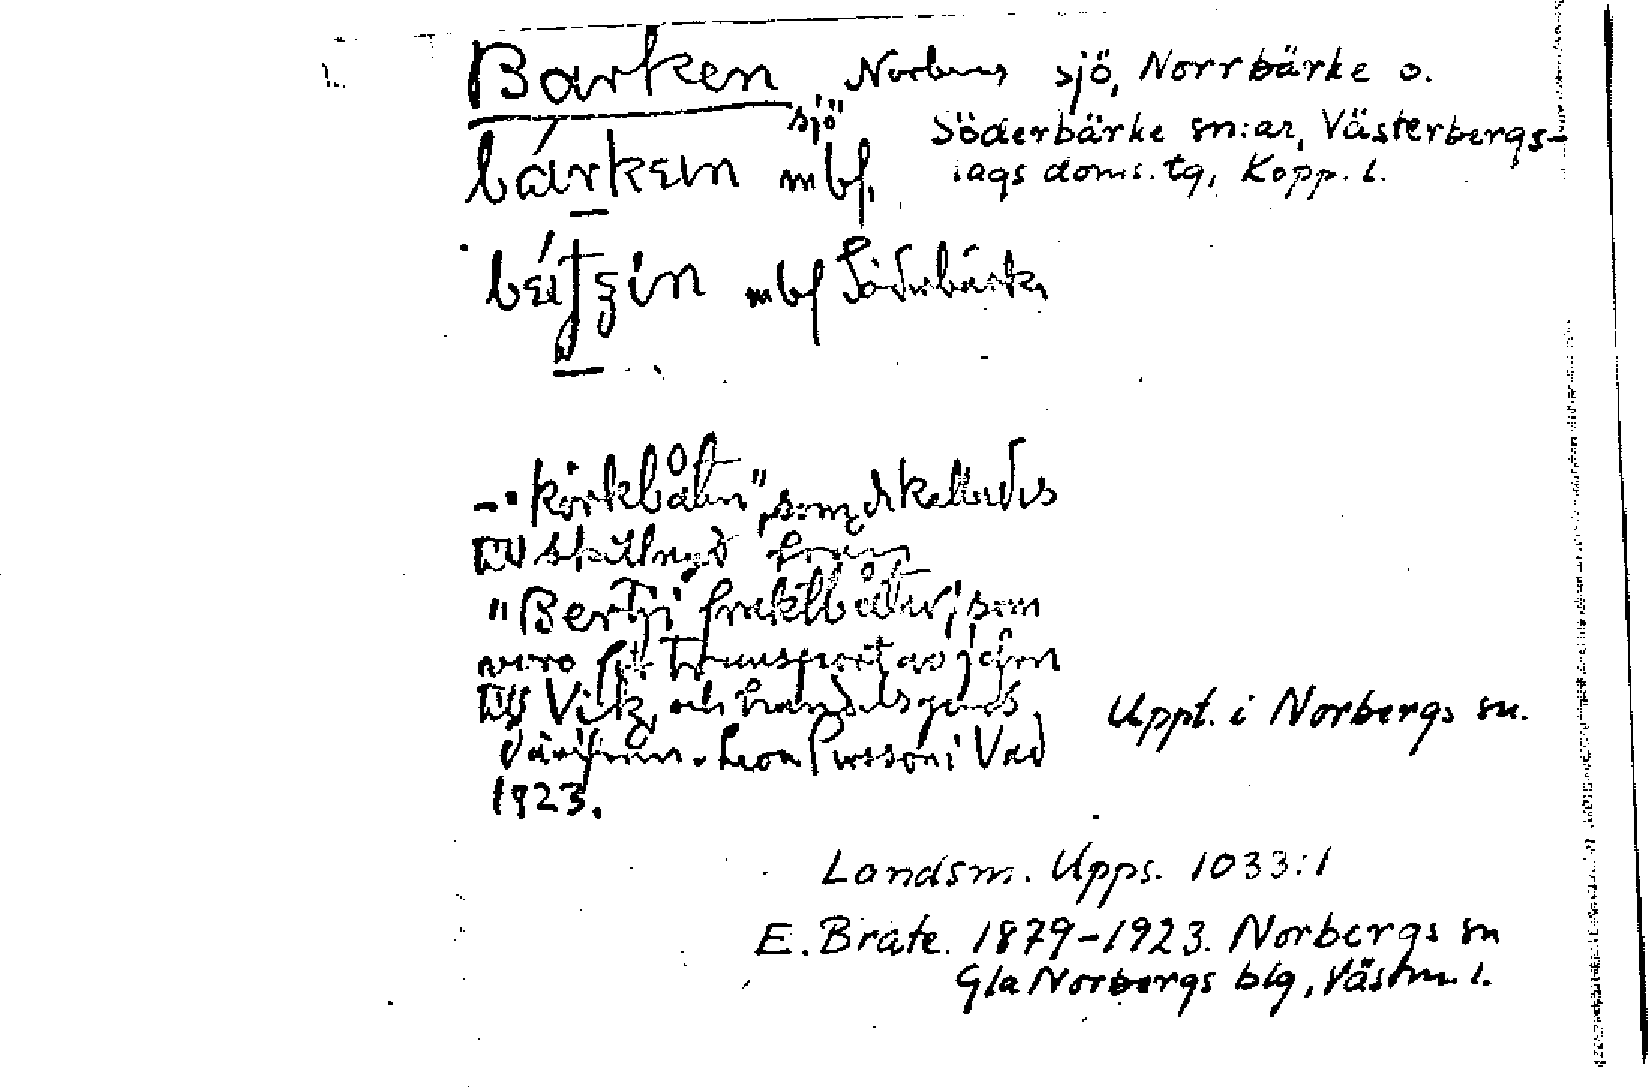 Barken sjö Norbergs sjö, Norrbärke o.
Söderbärke sn:ar, Västerbergs-
lags doms. tg, Kopp. l.
bárkεın mbf.
mbf Söderbärke
-"körkbåtn", som de kallades
till skillnad från
"Bertji fraktbåtar, som
voro för transport as järn
till och handelsgods
därifrån. Persson i Vad
1923.
Uppt. i Norbergs sn.
Landsm. Upps. 1033:1
E. Brate. 1879-1923. Norbergs sn
Gla Norbergs blg, Västm. l.